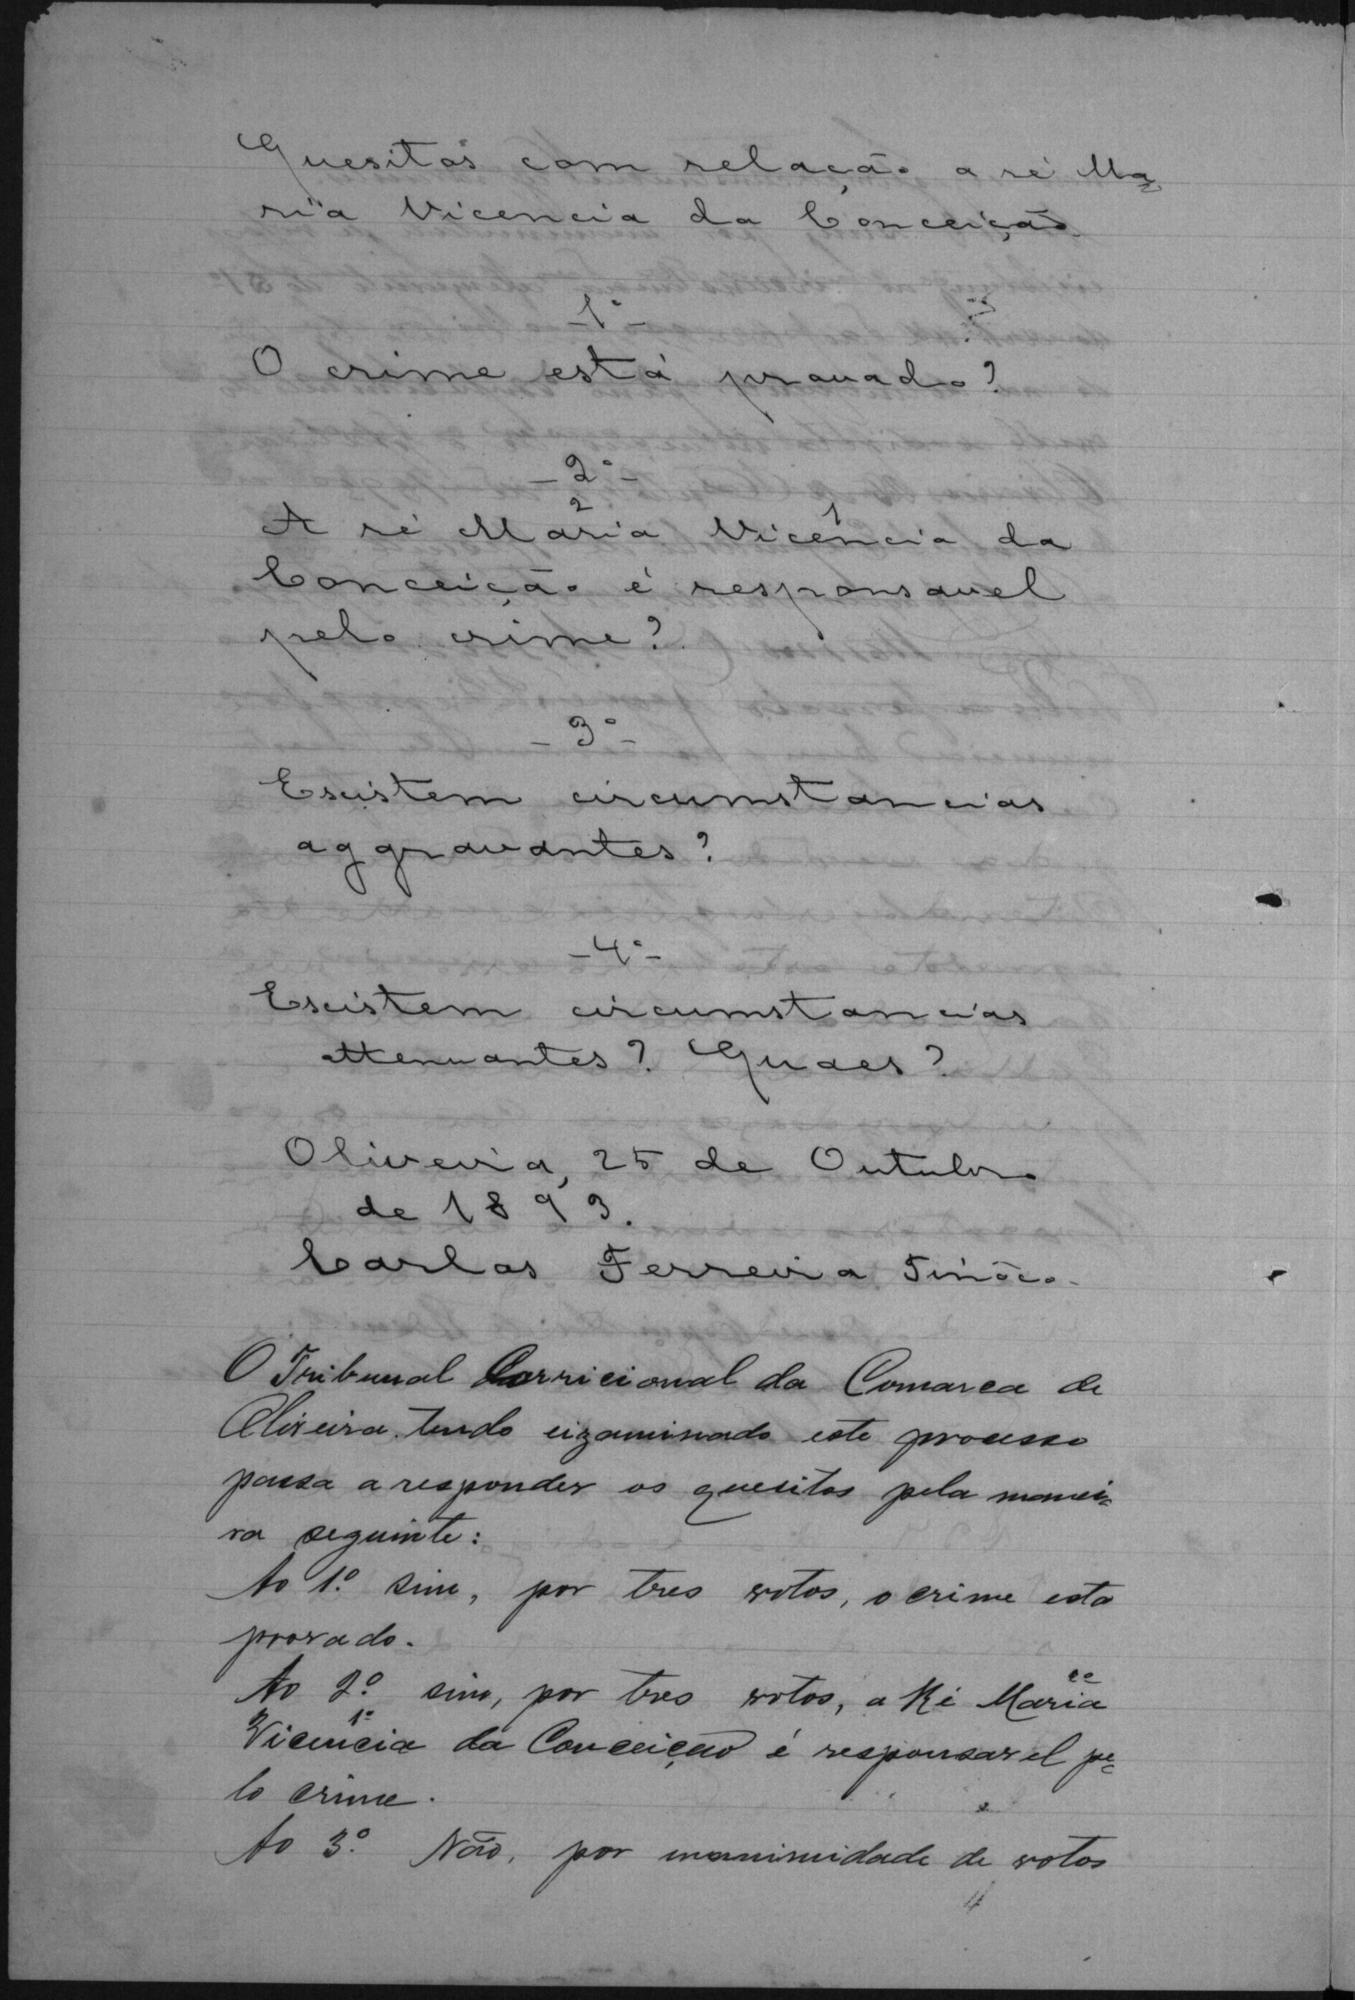 Quesitos com relação a ré Ma-
ria Vicencia da Conceição.
- 1º -
O crime está provado?
- 2º -
2 1
A ré Maria Vicência da
Conceição é responsavel
pelo crime?
- 3º -
Existem circumstancias
aggravantes?
- 4º -
Existem circumstancias
attenuantes? Quaes?
Oliveira, 25 de Outubro
de 1893.
Carlos Ferreira Tinôco.
O Tribunal Corricional da Comarca de
Oliveira tendo eizaminado este processo
passa a responder os quesitos pela manei-
ra seguinte:
Ao 1º sim, por tres votos, o crime esta
provado.
Ao 2º sim, por tres votos, a Ré Maria
Vicencia da Conceição é responsavel pe-
lo crime.
Ao 3º Não, por unanimidade de votos